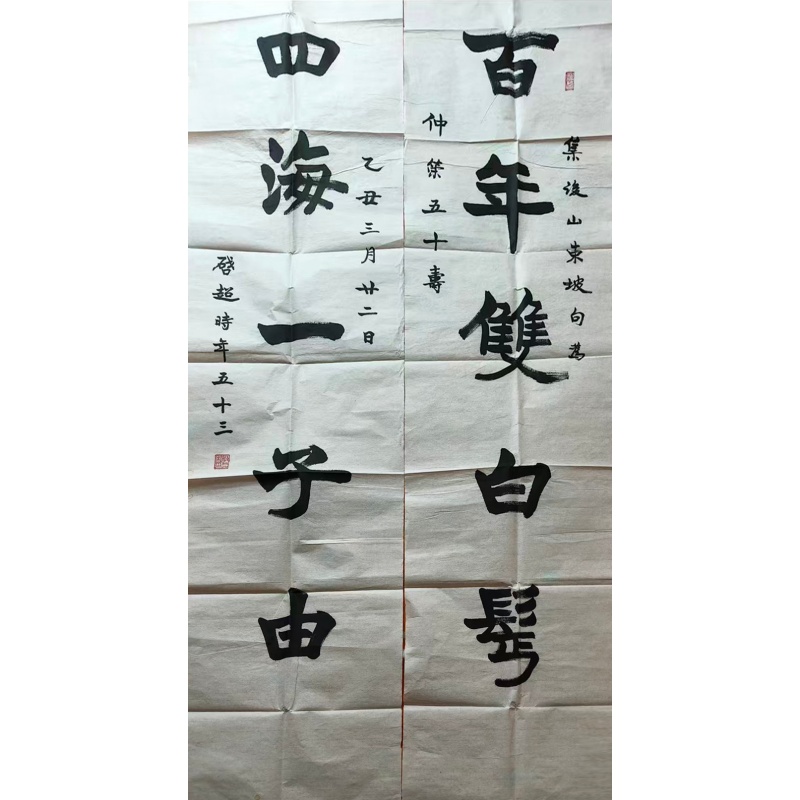 百年雙白鬢
集後山東坡句為
仲策五十壽
四海一子由
乙丑三月廿二日
啓超時年五十三